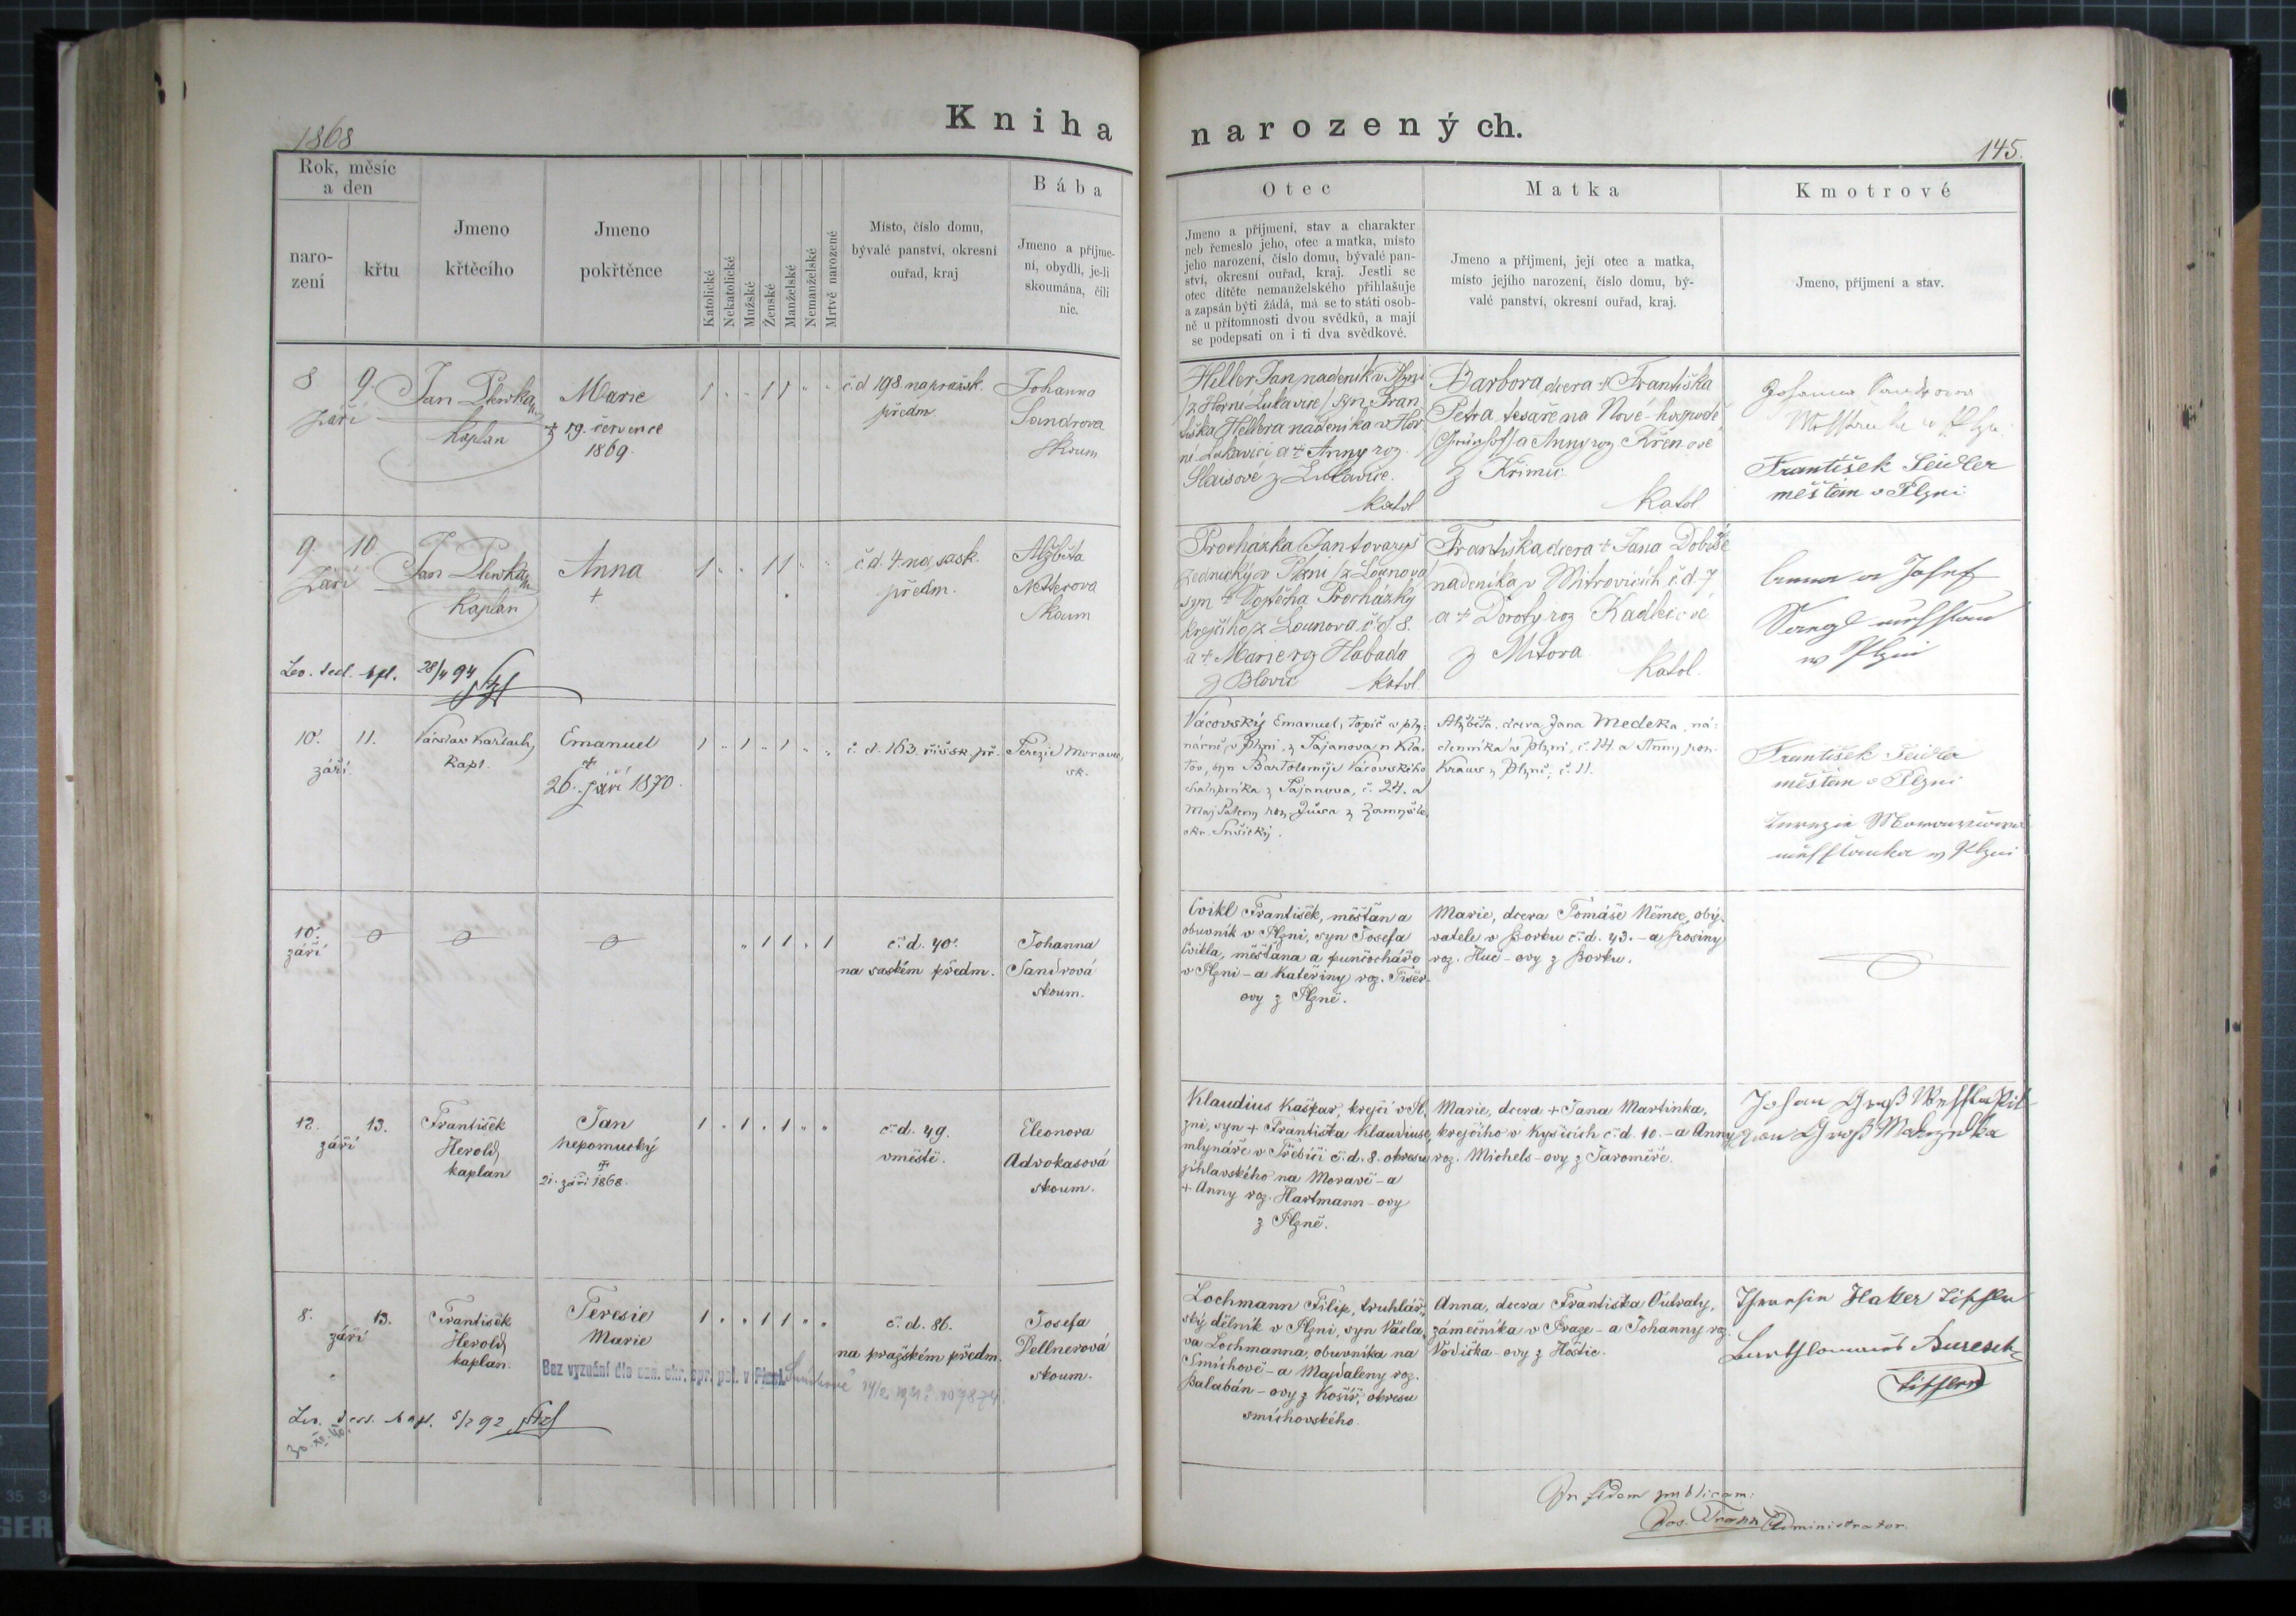 1868
Kniha
narozených.
145.
Rok, měsíc
a den
naro-
zení
křtu
Jmeno
křtěcího
Jmeno
pokřtěnce
Katolické
Nekatolické
Mužské
Ženské
Manželské
Nemanželské
Mrtvě narozené
Místo, číslo domu,
bývalé panství, okresní
ouřad, kraj
Bába
Jmeno a přijme-
ní, obydlí, je-li
skoumána, čili
nic.
Otec
Jmeno a přijmení, stav a charakter
neb řemeslo jeho, otec a matka, místo
jeho narození, číslo domu, bývalé pan-
ství, okresní ouřad, kraj. Jestli se
otec dítěte nemanželského přihlašuje
a zapsán býti žádá, má se to státi osob-
ně u přítomnosti dvou svědků, a mají
se podepsati on i ti dva svědkové.
Matka
Jmeno a přijmení, její otec a matka,
místo jejího narození, číslo domu, bý-
valé panství, okresní ouřad, kraj.
Kmotrové
Jmeno, příjmení a stav.
8 9.
září
Jan
kaplan
Marie
19. července
1869.
1 " " 1 1 " "
č.d 198. na pražsk.
předm.
Johanna
Sandrova
skoum
Heller Jan, nadeník v Plzni
/z Horní Lukavice/ syn Fran
tiška Hellera nádeníka v Hor
ní Lukavici a + Anny roz.
z Lukavice.
katol
Barbora dcera + Františka
Petra tesaře na Nové-hospodě
a Anny roz Křenové
z Křimic
Katol
František Seidler
měštan v Plzni
9. 10
Září
Jan
kaplan
Anna
+
1 " " 1 1 " "
č.d. 4. na sask.
předm.
Alžběta
skoum
Procházka Jan tovaryš
zednický v Plzni /z Lounova/
syn + Vojtěcha Procházky
krejčího z Lounova č.d 8.
a + Marie roz Habada
z Blovic katol.
Františka dcera + Jana
nadeníka v Mitrovicích č.d. 7
a + Doroty roz Kadlecové
z
Katol.
Josef
w Plzni
28/4 94
10. 11.
září.
Václav Karlach,
Kapl.
Emanuel
+
26. září 1870.
1 " 1 " 1 " "
č. d. 163. říšsk. př.
Terezie
sk.
Vácovský Emanuel, topič v ply-
nárně v Plzni, z Tajanova n Kla-
tov, syn Bartoloměje Vácovského
chalupníka z Tajanova, č. 24. a
z
okr. Sušický.
Alžběta, dcera Jana Medeka, ná-
denníka v Plzni, č. 14. a Anny, roz.
Kraus z Plzně, č. 11.
František Seidler
měštan v Plzni
w Plzni
10.
září
" 1 1 " 1
č. d. 40.
na saském předm.
Johanna
Sandrová
skoum.
Cvikl František, měšťan a
obuvník v Plzni, syn Josefa
Cvikla, měšťana a punčocháře
v Plzni – a Kateřiny roz. Tišer-
ovy z Plzně.
Marie, dcera Tomáše Němce, oby-
vatele v Borku č.d. 43. – a Rosiny
roz. Huč-ovy z Borku.
12. 13.
září
František
Herold,
kaplan
Jan
Nepomucký
+
21. září 1868.
1 " 1 " 1 " "
č. d. 49.
v městě.
Eleonora
Advokasová
skoum.
Klaudius Kašpar, krejčí v Pl-
zni, syn + Františka Klaudiuse,
mlynáře v Třebíči č.d. 8. okresu
jihlavského na Moravě – a
+ Anny roz. Hartmann-ovy
z Plzně.
Marie, dcera + Jana Martinka,
krejčího v Kyšicích č.d. 10. – a Anny
roz. Michels-ovy z Jaroměře.
8. 13.
září
František
Herold,
kaplan.
Teresie
Marie
1 " " 1 1 " "
č. d. 86.
na pražském předm.
Josefa
Dellnerová
skoum.
Bez vyznání dle ozn. okr. spr. pol. v
Smíchově
5/2 92
Lochmann Filip, truhlář-
ský dělník v Plzni, syn Václa-
va Lochmanna, obuvníka na
Smíchově – a Majdaleny roz.
Balabán-ovy z Košíř, okresu
smíchovského.
Anna, dcera Františka Outraty,
zámečníka v Praze – a Johanny roz.
Vodička-ovy z Hoštic.
In fidem publicam:
Administrator.